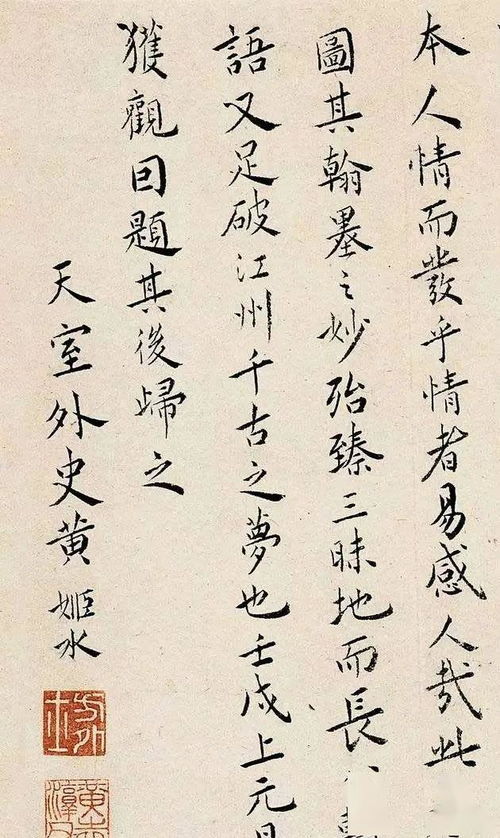 本人情而發乎情者易感人哉此
圖其翰墨之妙殆臻三昧地而長
語又足破江州千古之夢也壬戌上元日
獲觀因題其後歸之
天室外史黃姬水